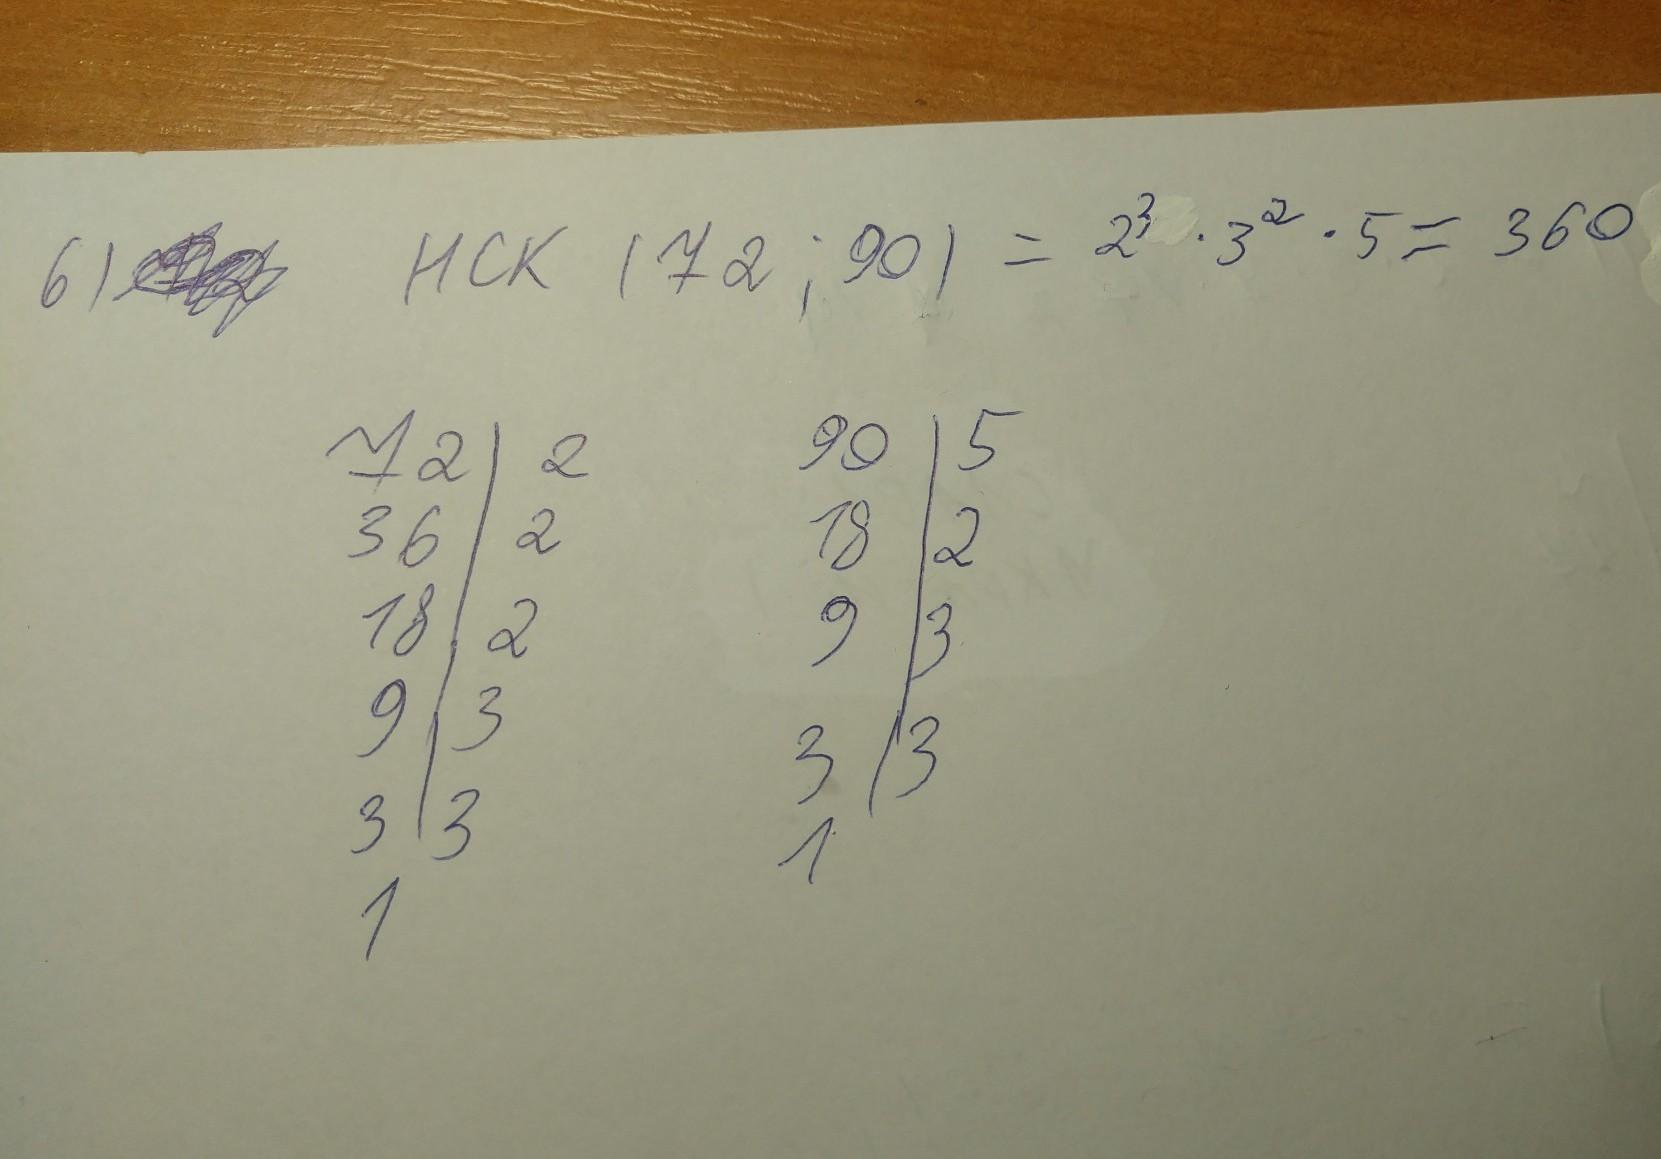 6) НСК (72 ; 90) = 2³ · 3² · 5 = 360
72 | 2 90 | 5
36 | 2 18 | 2
18 | 2 9 | 3
9 | 3 3 | 3
3 | 3 1
1